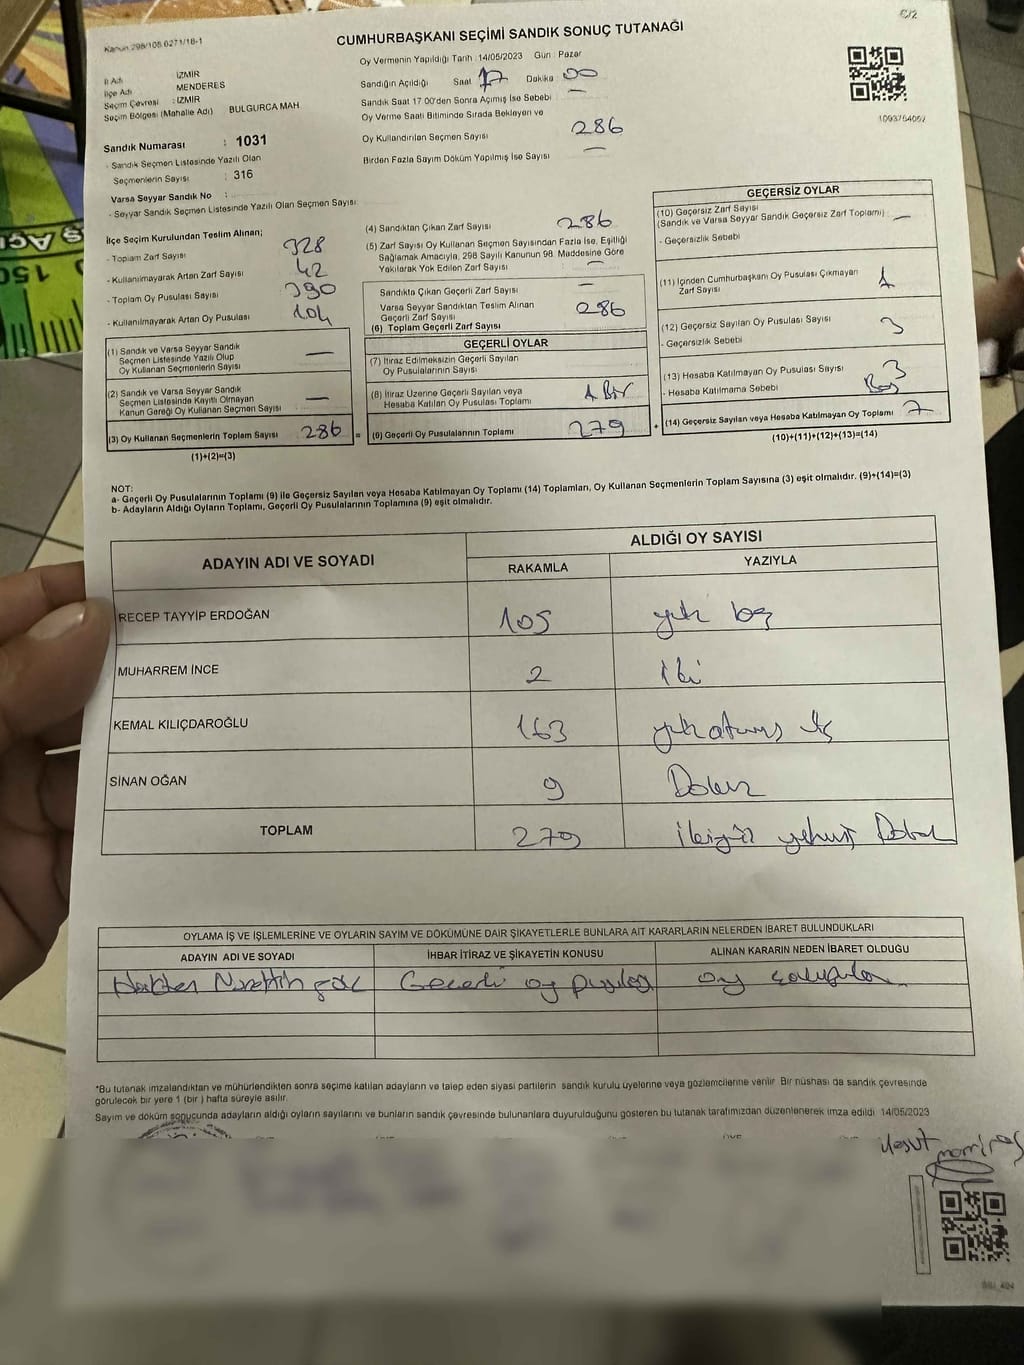 C/2
Kanun 298/105.0271/18-1
CUMHURBAŞKANI SEÇİMİ SANDIK SONUÇ TUTANAĞI
İl Adı : İZMİR
İlçe Adı : MENDERES
Seçim Çevresi : İZMİR
Seçim Bölgesi (Mahalle Adı) BULGURCA MAH
Sandık Numarası : 1031
- Sandık Seçmen Listesinde Yazılı Olan
Seçmenlerin Sayısı : 316
Varsa Seyyar Sandık No :
- Seyyar Sandık Seçmen Listesinde Yazılı Olan Seçmen Sayısı:
Oy Vermenin Yapıldığı Tarih : 14/05/2023 Gün : Pazar
Sandığın Açıldığı Saat 17 Dakika 00
Sandık Saat 17 00'den Sonra Açılmış İse Sebebi —
Oy Verme Saati Bitiminde Sırada Bekleyen ve
Oy Kullandırılan Seçmen Sayısı 286
Birden Fazla Sayım Döküm Yapılmış İse Sayısı —
1093764052
İlçe Seçim Kurulundan Teslim Alınan;
- Toplam Zarf Sayısı 328
- Kullanılmayarak Artan Zarf Sayısı 42
- Toplam Oy Pusulası Sayısı 390
- Kullanılmayarak Artan Oy Pusulası 104
(1) Sandık ve Varsa Seyyar Sandık
Seçmen Listesinde Yazılı Olup
Oy Kullanan Seçmenlerin Sayısı —
(2) Sandık ve Varsa Seyyar Sandık
Seçmen Listesinde Kayıtlı Olmayan
Kanun Gereği Oy Kullanan Seçmen Sayısı —
(3) Oy Kullanan Seçmenlerin Toplam Sayısı 286 =
(1)+(2)=(3)
(4) Sandıktan Çıkan Zarf Sayısı 286
(5) Zarf Sayısı Oy Kullanan Seçmen Sayısından Fazla İse, Eşitliği
Sağlamak Amacıyla, 298 Sayılı Kanunun 98. Maddesine Göre
Yakılarak Yok Edilen Zarf Sayısı —
Sandıkta Çıkan Geçerli Zarf Sayısı —
Varsa Seyyar Sandıktan Teslim Alınan
Geçerli Zarf Sayısı
(6) Toplam Geçerli Zarf Sayısı 286
GEÇERLİ OYLAR
(7) İtiraz Edilmeksizin Geçerli Sayılan
Oy Pusulasının Sayısı
(8) İtiraz Üzerine Geçerli Sayılan veya
Hesaba Katılan Oy Pusulası Toplamı 1 Bir
(9) Geçerli Oy Pusulalarının Toplamı 279 +
GEÇERSİZ OYLAR
(10) Geçersiz Zarf Sayısı
(Sandık ve Varsa Seyyar Sandık Geçersiz Zarf Toplamı) —
- Geçersizlik Sebebi
(11) İçinden Cumhurbaşkanı Oy Pusulası Çıkmayan
Zarf Sayısı 1
(12) Geçersiz Sayılan Oy Pusulası Sayısı 3
- Geçersizlik Sebebi
(13) Hesaba Katılmayan Oy Pusulası Sayısı 3
- Hesaba Katılmama Sebebi Boş
(14) Geçersiz Sayılan veya Hesaba Katılmayan Oy Toplamı 7
(10)+(11)+(12)+(13)=(14)
NOT:
a- Geçerli Oy Pusulalarının Toplamı (9) ile Geçersiz Sayılan veya Hesaba Katılmayan Oy Toplamı (14) Toplamları, Oy Kullanan Seçmenlerin Toplam Sayısına (3) eşit olmalıdır. (9)+(14)=(3)
b- Adayların Aldığı Oyların Toplamı, Geçerli Oy Pusulalarının Toplamına (9) eşit olmalıdır.
ADAYIN ADI VE SOYADI ALDIĞI OY SAYISI
RAKAMLA YAZIYLA
RECEP TAYYİP ERDOĞAN 105 yüz beş
MUHARREM İNCE 2 iki
KEMAL KILIÇDAROĞLU 163 yüz atmış üç
SİNAN OĞAN 9 Dokuz
TOPLAM 279 ikiyüz yetmiş Dokuz
OYLAMA İŞ VE İŞLEMLERİNE VE OYLARIN SAYIM VE DÖKÜMÜNE DAİR ŞİKAYETLERLE BUNLARA AİT KARARLARIN NELERDEN İBARET BULUNDUKLARI
ADAYIN ADI VE SOYADI İHBAR İTİRAZ VE ŞİKAYETİN KONUSU ALINAN KARARIN NEDEN İBARET OLDUĞU
Geçerli oy pusulası oy
*Bu tutanak imzalandıktan ve mühürlendikten sonra seçime katılan adayların ve talep eden siyasi partilerin sandık kurulu üyelerine veya gözlemcilerine verilir. Bir nüshası da sandık çevresinde
görülecek bir yere 1 (bir) hafta süreyle asılır.
Sayım ve döküm sonucunda adayların aldığı oyların sayılarını ve bunların sandık çevresinde bulunanlara duyurulduğunu gösteren bu tutanak tarafımızdan düzenlenerek imza edildi 14/05/2023